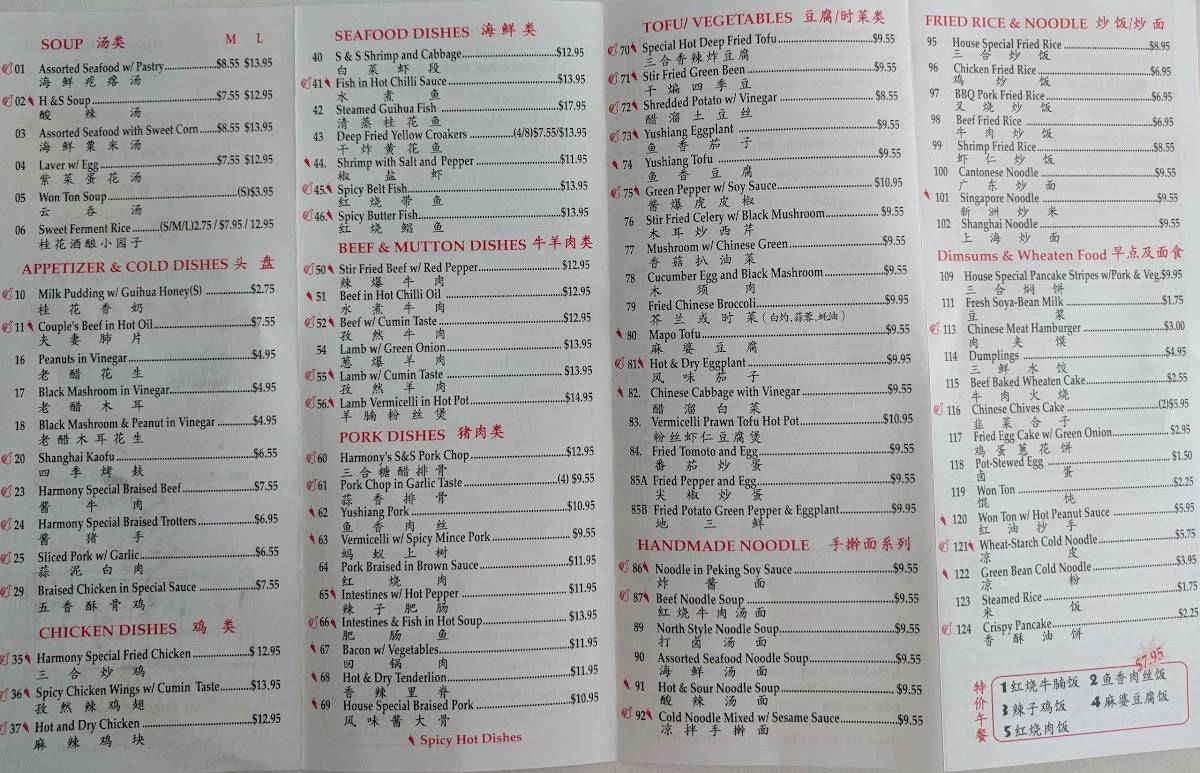 SOUP 汤类 M L
01 Assorted Seafood w/ Pastry $8.55 $13.95
海鲜疙瘩汤
02 H &S Soup $7.55 $12.95
酸辣汤
03 Assorted Seafood with Sweet Corn $8.55 $13.95
海鲜粟米汤
04 Laver w/ Egg $7.55 $12.95
紫菜蛋花汤
05 Won Ton Soup (S)$3.95
云吞汤
06 Sweet Ferment Rice (S/M/L)2.75 / $7.95 / 12.95
桂花酒酿小园子
APPETIZER & COLD DISHES 头盘
10 Milk Pudding w/ Guihua Honey(S) $2.75
桂花香奶
11 Couple's Beef in Hot Oil $7.55
夫妻肺片
16 Peanuts in Vinegar $4.95
老醋花生
17 Black Mashroom in Vinegar $4.95
老醋木耳
18 Black Mashroom & Peanut in Vinegar $4.95
老醋木耳花生
20 Shanghai Kaofu $6.55
四季烤麸
23 Harmony Special Braised Beef $7.55
酱牛肉
24 Harmony Special Braised Trotters $6.95
酱猪手
25 Sliced Pork w/ Garlic $6.55
蒜泥白肉
29 Braised Chicken in Special Sauce $7.55
五香酥骨鸡
CHICKEN DISHES 鸡类
35 Harmony Special Fried Chicken $ 12.95
三合炒鸡
36 Spicy Chicken Wings w/ Cumin Taste $13.95
孜然辣鸡翅
37 Hot and Dry Chicken $12.95
麻辣鸡块
SEAFOOD DISHES 海鲜类
40 S & S Shrimp and Cabbage $12.95
白菜虾段
41 Fish in Hot Chilli Sauce $13.95
水煮鱼
42 Steamed Guihua Fish $17.95
清蒸桂花鱼
43 Deep Fried Yellow Croakers (4/8)$7.55/$13.95
干炸黄花鱼
44. Shrimp with Salt and Pepper $11.95
椒盐虾
45 Spicy Belt Fish $13.95
红烧带鱼
46 Spicy Butter Fish $13.95
红烧鲳鱼
BEEF & MUTTON DISHES 牛羊肉类
50 Stir Fried Beef w/ Red Pepper $12.95
辣爆牛肉
51 Beef in Hot Chilli Oil $12.95
水煮牛肉
52 Beef w/ Cumin Taste $12.95
孜然牛肉
54 Lamb w/ Green Onion $13.95
葱爆羊肉
55 Lamb w/ Cumin Taste $13.95
孜然羊肉
56 Lamb Vermicelli in Hot Pot $14.95
羊腩粉丝煲
PORK DISHES 猪肉类
60 Harmony's S&S Pork Chop $12.95
三合糖醋排骨
61 Pork Chop in Garlic Taste (4) $9.55
蒜香排骨
62 Yushiang Pork $10.95
鱼香肉丝
63 Vermicelli w/ Spicy Mince Pork $9.55
蚂蚁上树
64 Pork Braised in Brown Sauce $11.95
红烧肉
65 Intestines w/ Hot Pepper $11.95
辣子肥肠
66 Intestines & Fish in Hot Soup $13.95
肥肠鱼
67 Bacon w/ Vegetables $11.95
回锅肉
68 Hot & Dry Tenderlion $11.95
香辣里脊
69 House Special Braised Pork $10.95
风味酱大骨
Spicy Hot Dishes
TOFU/ VEGETABLES 豆腐/时菜类
70 Special Hot Deep Fried Tofu $9.55
三合香辣炸豆腐
71 Stir Fried Green Been $9.55
干煸四季豆
72 Shredded Potato w/ Vinegar $8.55
醋溜土豆丝
73 Yushiang Eggplant $9.55
鱼香茄子
74 Yushiang Tofu $9.55
鱼香豆腐
75 Green Pepper w/ Soy Sauce $10.95
酱爆虎皮椒
76 Stir Fried Celery w/ Black Mushroom $9.55
木耳炒西芹
77 Mushroom w/ Chinese Green $9.55
香菇扒油菜
78 Cucumber Egg and Black Mashroom $9.55
木须肉
79 Fried Chinese Broccoli $9.95
芥兰或时菜(白灼,蒜蓉,蚝油)
80 Mapo Tofu $9.55
麻婆豆腐
81 Hot & Dry Eggplant $9.95
风味茄子
82. Chinese Cabbage with Vinegar $9.55
醋溜白菜
83. Vermicelli Prawn Tofu Hot Pot $10.95
粉丝虾仁豆腐煲
84. Fried Tomato and Egg $9.55
番茄炒蛋
85A Fried Pepper and Egg $9.55
尖椒炒蛋
85B Fried Potato Green Pepper & Eggplant $9.95
地三鲜
HANDMADE NOODLE 手擀面系列
86 Noodle in Peking Soy Sauce $9.55
炸酱面
87 Beef Noodle Soup $9.55
红烧牛肉汤面
89 North Style Noodle Soup $9.55
打卤汤面
90 Assorted Seafood Noodle Soup $9.55
海鲜汤面
91 Hot & Sour Noodle Soup $9.55
酸辣汤面
92 Cold Noodle Mixed w/ Sesame Sauce $9.55
凉拌手擀面
FRIED RICE & NOODLE 炒饭/炒面
95 House Special Fried Rice $8.95
三合炒饭
96 Chicken Fried Rice $6.95
鸡炒饭
97 BBQ Pork Fried Rice $6.95
叉烧炒饭
98 Beef Fried Rice $6.95
牛肉炒饭
99 Shrimp Fried Rice $8.55
虾仁炒饭
100 Cantonese Noodle $9.55
广东炒面
101 Singapore Noodle $9.55
新洲炒米
102 Shanghai Noodle $9.55
上海炒面
Dimsums & Wheaten Food 早点及面食
109 House Special Pancake Stripes w/Pork & Veg. $9.95
三合焖饼
111 Fresh Soya-Bean Milk $1.75
豆浆
113 Chinese Meat Hamburger $3.00
肉夹馍
114 Dumplings $4.95
三鲜水饺
115 Beef Baked Wheaten Cake $2.55
牛肉火烧
116 Chinese Chives Cake (2)$5.95
韭菜合子
117 Fried Egg Cake w/ Green Onion $2.95
鸡蛋葱花饼
118 Pot-Stewed Egg $1.50
卤蛋
119 Won Ton $2.25
馄饨
120 Won Ton w/ Hot Peanut Sauce $5.95
红油抄手
121 Wheat-Starch Cold Noodle $5.75
凉皮
122 Green Bean Cold Noodle $3.95
凉粉
123 Steamed Rice $1.75
米饭
124 Crispy Pancake $2.25
香酥油饼
$7.95
特价午餐
1 红烧牛腩饭 2 鱼香肉丝饭
3 辣子鸡饭 4 麻婆豆腐饭
5 红烧肉饭